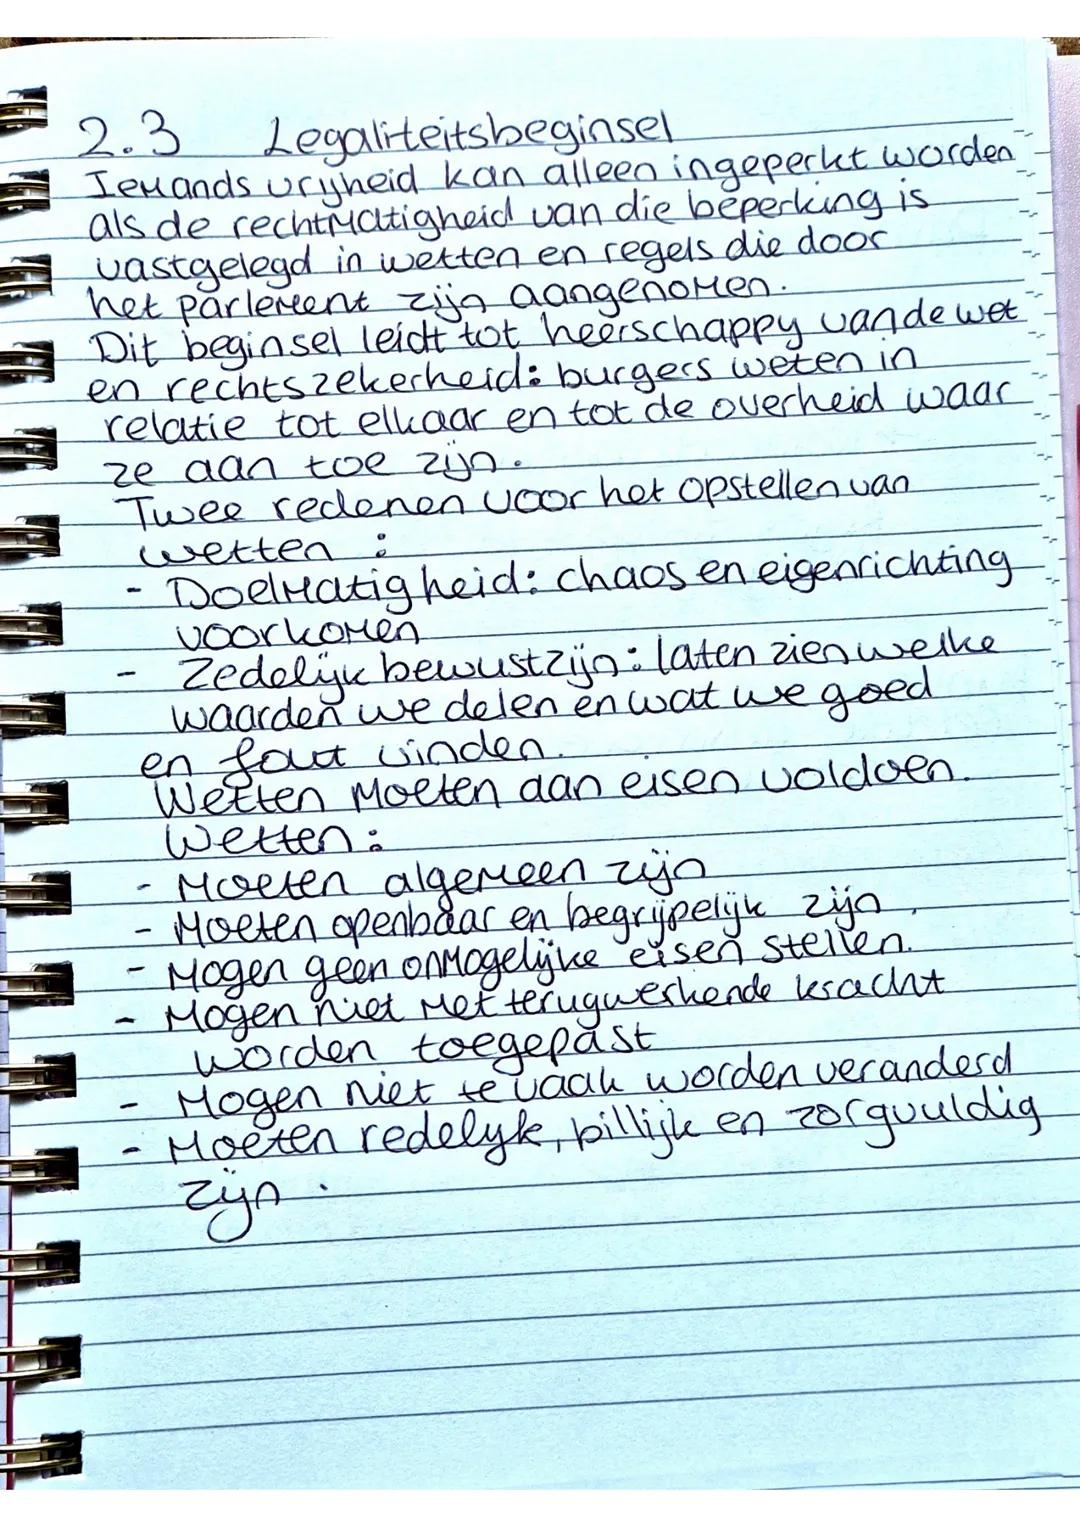 2.3 Legaliteitsbeginsel
Iemands vryheid kan alleen ingeperkt worden
als de rechtmatigheid van die beperking is
vastgelegd in wetten en regels die door
het parlement zijn aangenomen.
Dit beginsel leidt tot heerschappy van de wet
en rechtszekerheid: burgers weten in
relatie tot elkaar en tot de overheid waar
ze aan toe zijn.
Twee redenen voor het opstellen van
wetten :
- Doelmatigheid: chaos en eigenrichting
voorkomen
- Zedelijk bewustzijn: laten zien welke
waarden we delen en wat we goed
en fout vinden.
Wetten moeten aan eisen voldoen.
Wetten:
- Moeten algemeen zijn
- Moeten openbaar en begrijpelijk zijn.
- Mogen geen onmogelijke eisen stellen.
- Mogen niet met terugwerkende kracht
worden toegepast
- Mogen niet te vaak worden veranderd
- Moeten redelyk, billijk en zorgvuldig
zijn.